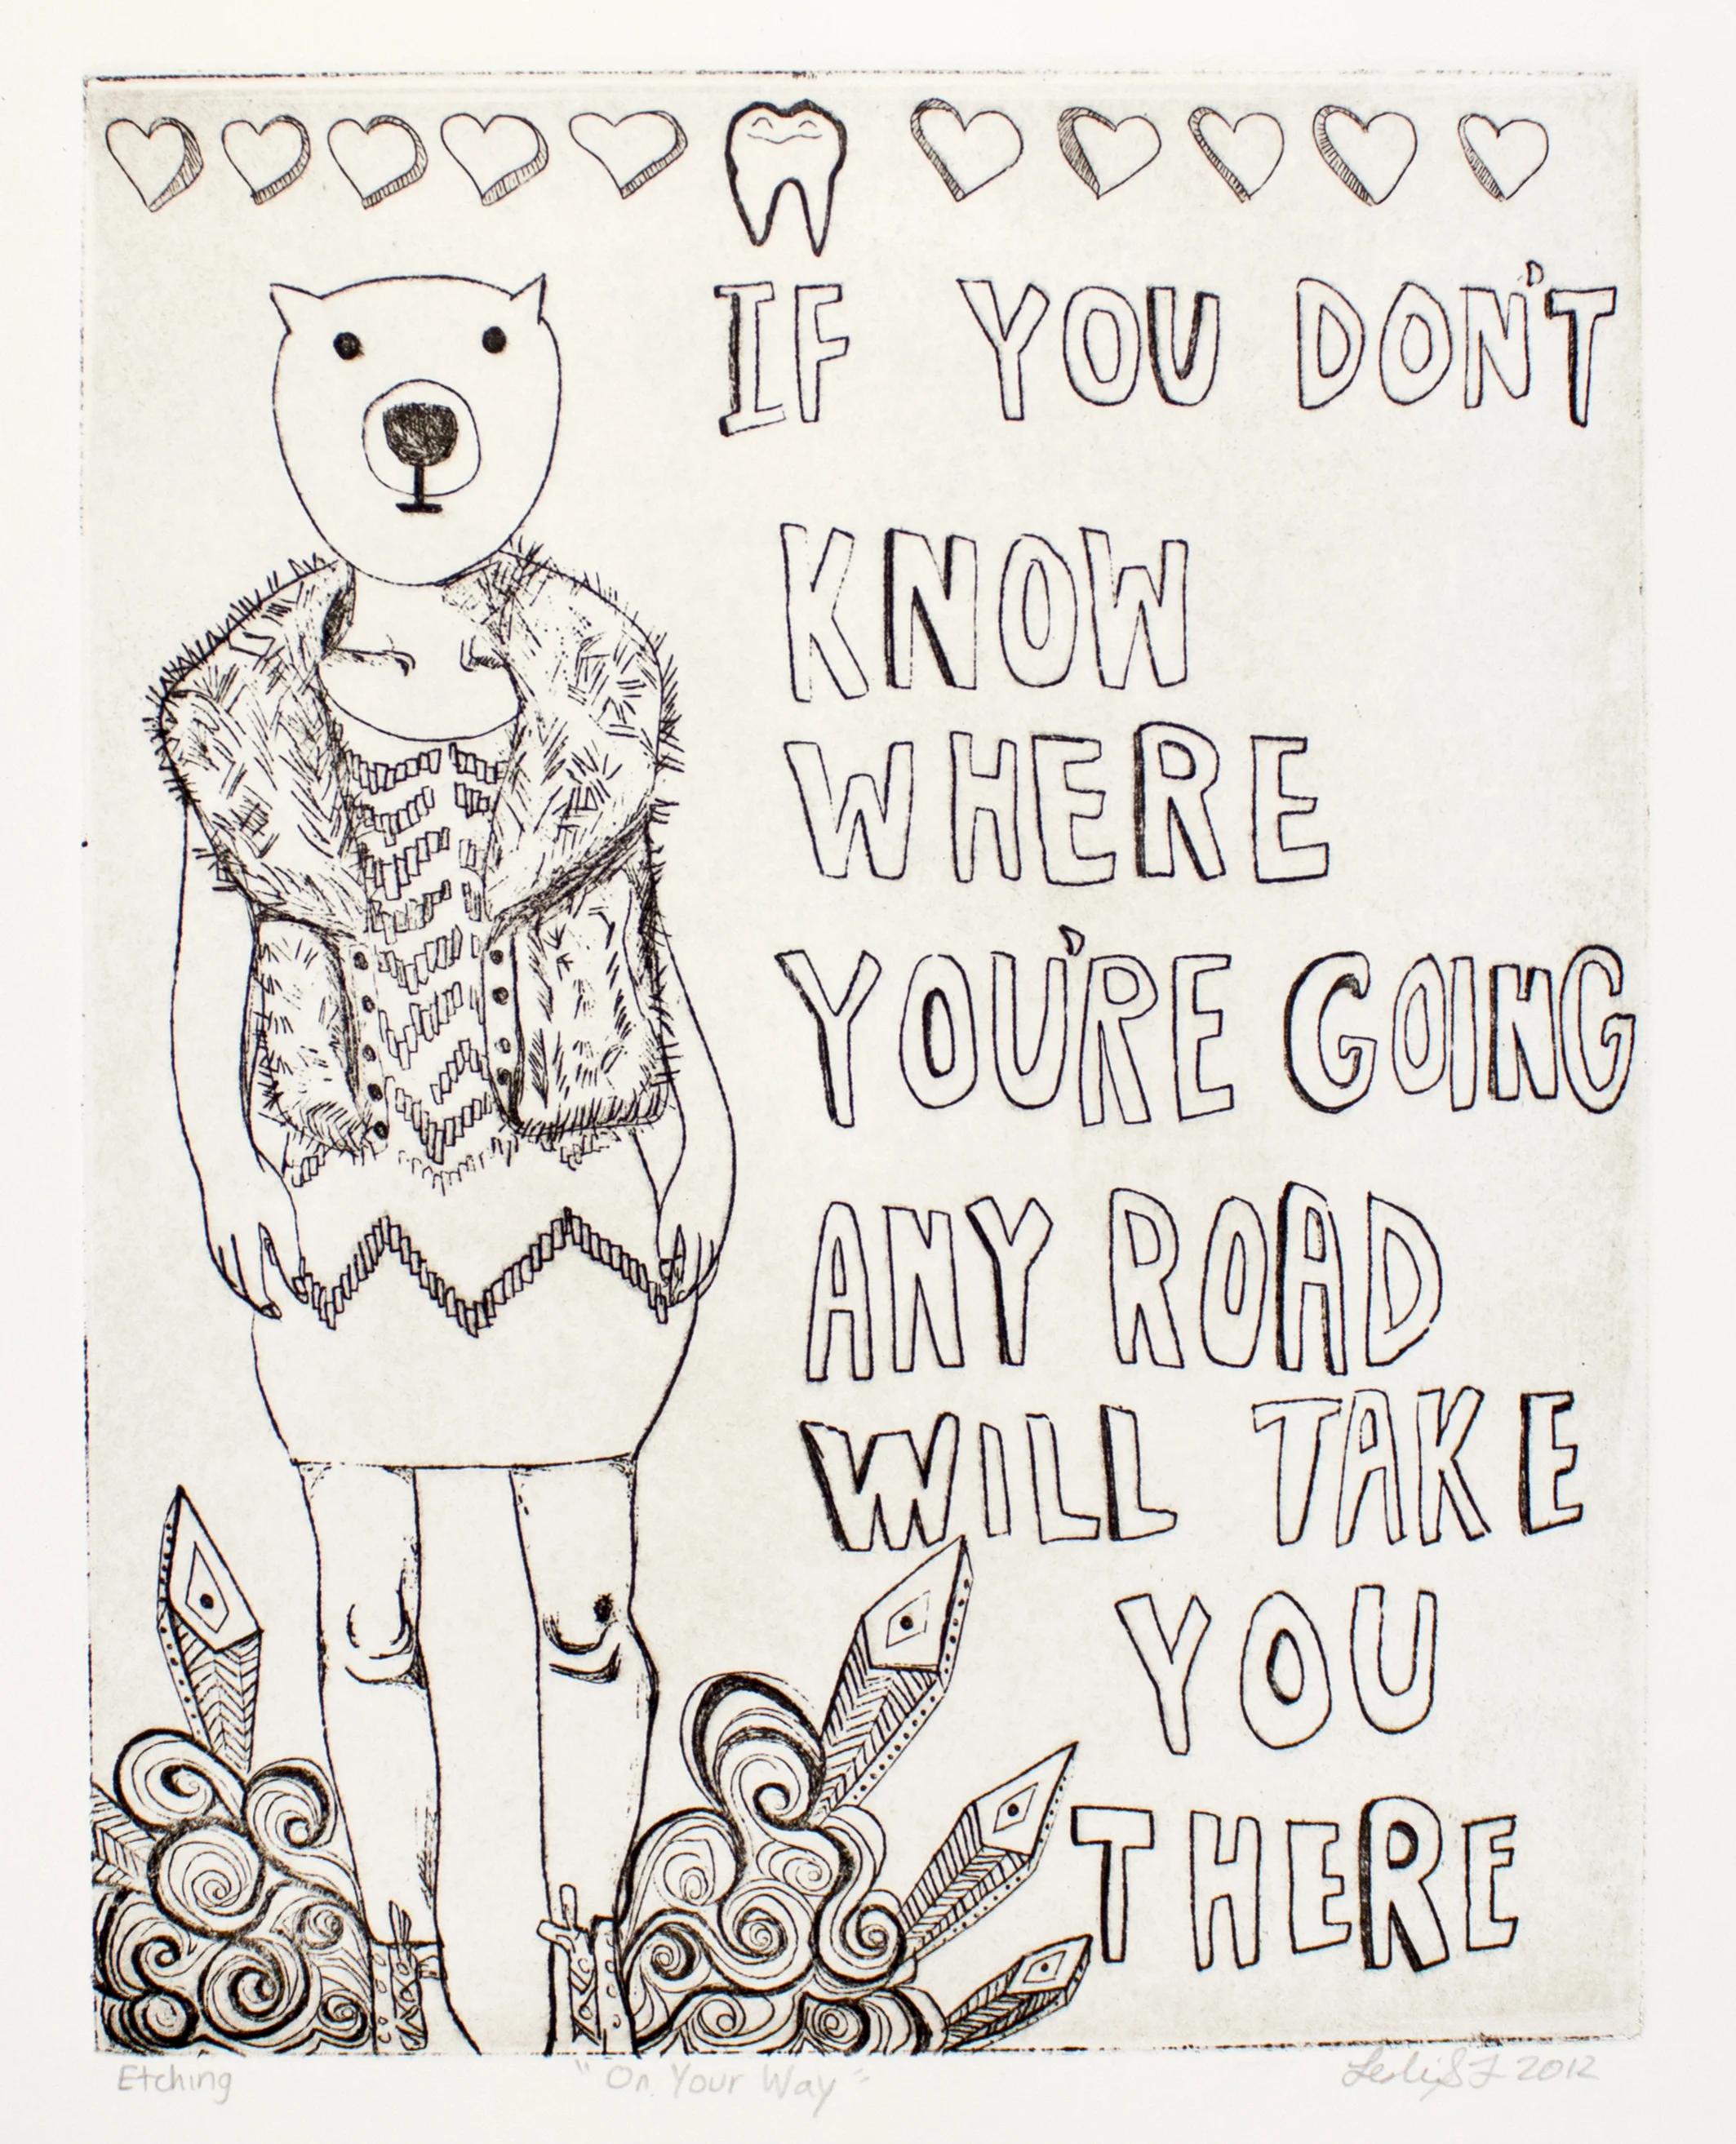 IF YOU DON'T
KNOW
WHERE
YOU'RE GOING
ANY ROAD
WILL TAKE
YOU
THERE
Etching
"On Your Way"
2012